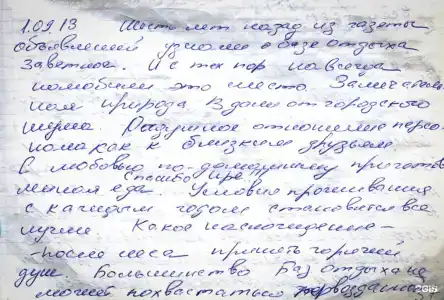 1.09.13 Шесть лет назад из газеты
объявлений узнали о базе отдыха
Заветное. И с тех пор навсегда
полюбили это место. Замечатель
ная природа вдали от городского
шума. Радушное отношение персо
нала как к близким друзьям.
С любовью по-домашнему приготов
ленная еда. Спасибо Ире! Условия проживания
с каждым годом становятся все
лучше. Какое наслаждение -
- после леса принять горячий
душ. Большинство баз отдыха не
может похвастаться